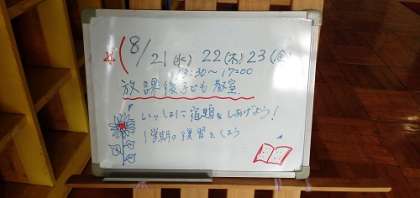 8/21(水) 22(木) 23(金)
13:30〜17:00
放課後子ども教室
いっしょに宿題をしあげよう!
1学期の復習をしよう